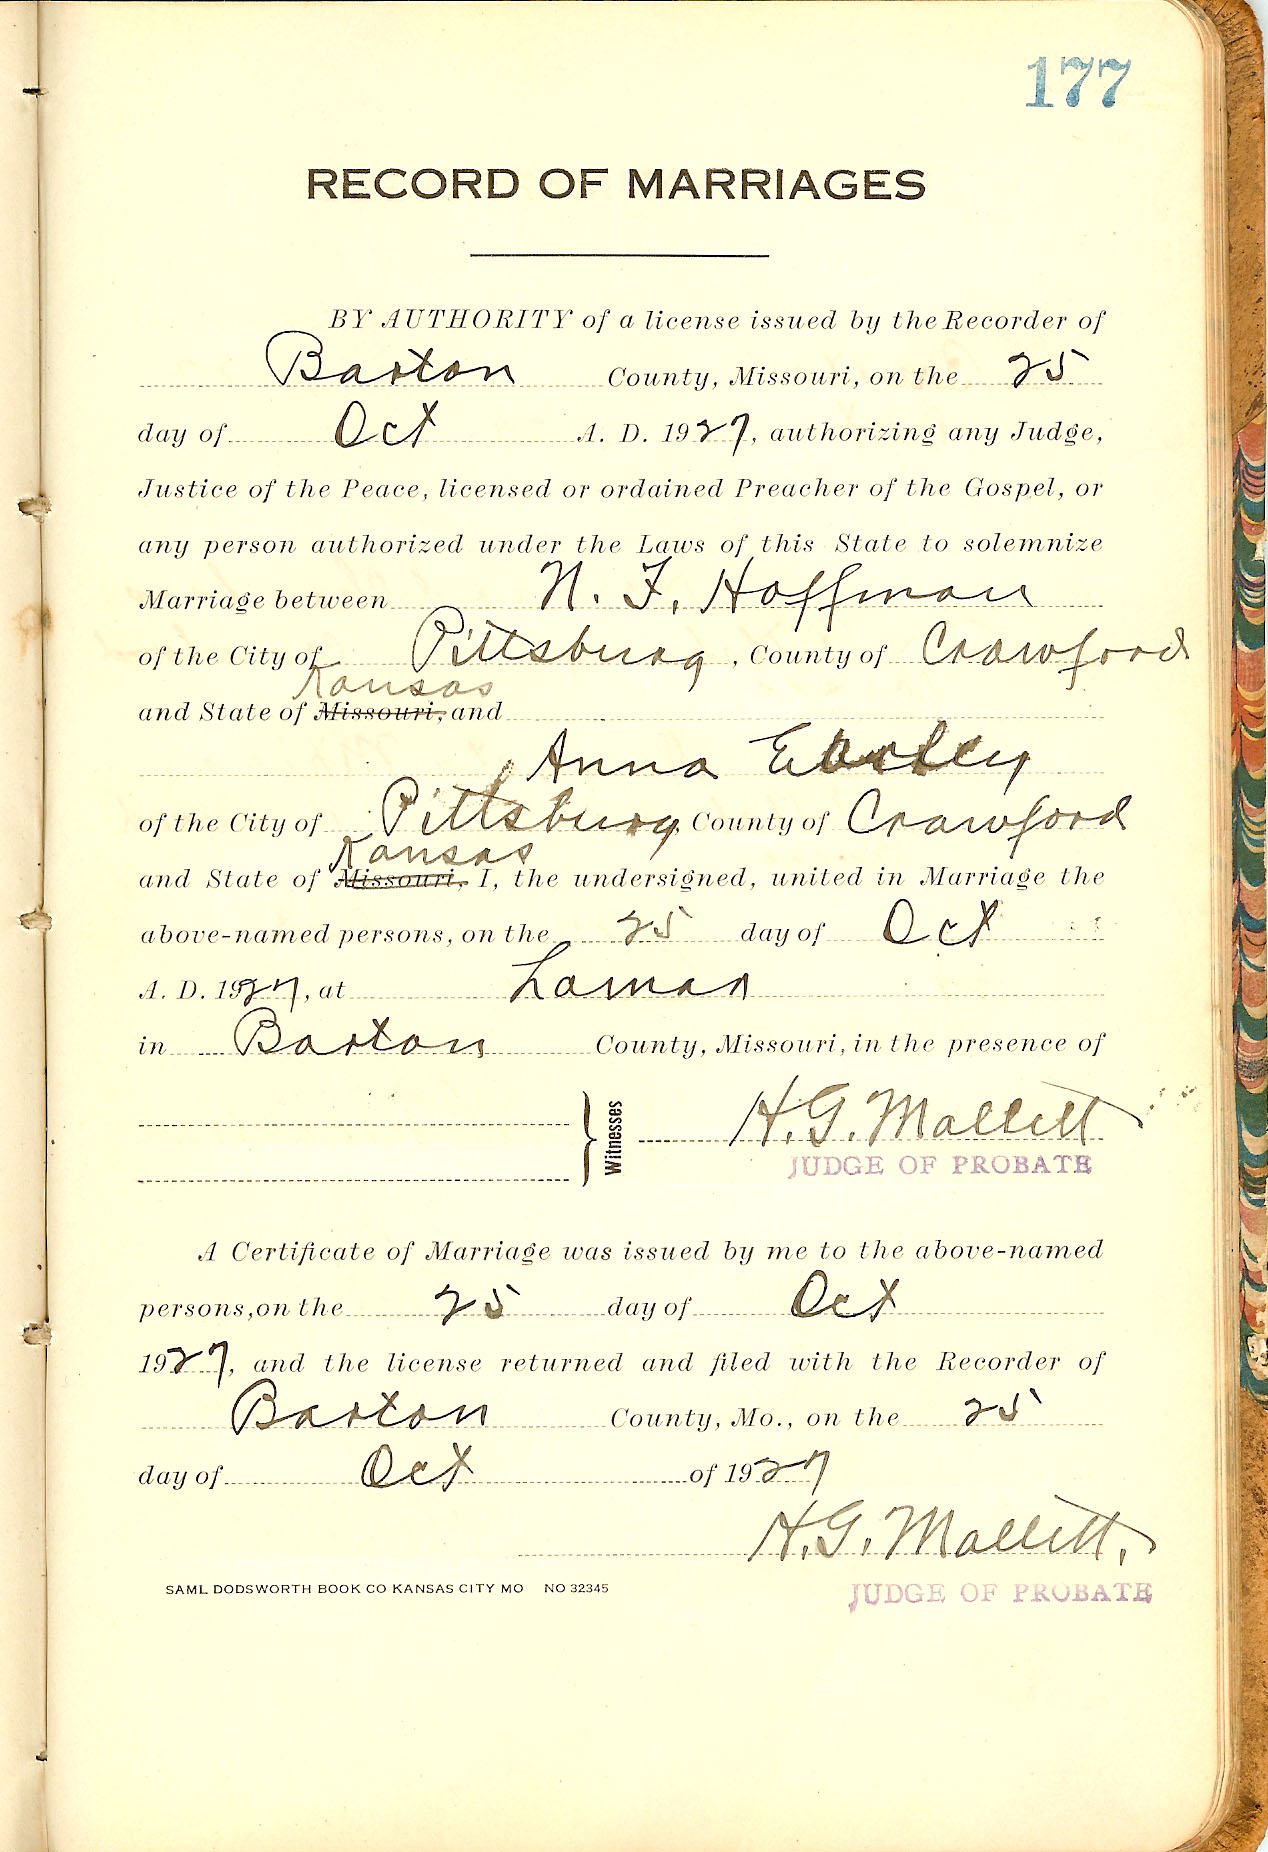 177
RECORD OF MARRIAGES
BY AUTHORITY of a license issued by the Recorder of
Barton County, Missouri, on the 25
day of Oct A. D. 1927, authorizing any Judge,
Justice of the Peace, licensed or ordained Preacher of the Gospel, or
any person authorized under the Laws of this State to solemnize
Marriage between N. F. Hoffman
of the City of Pittsburg, County of Crawford
Kansas
and State of Missouri, and
Anna
of the City of Pittsburg, County of Crawford
Kansas
and State of Missouri, I, the undersigned, united in Marriage the
above-named persons, on the 25 day of Oct
A. D. 1927, at Lamar
in Barton County, Missouri, in the presence of
Witnesses H. G. Mallett
JUDGE OF PROBATE
A Certificate of Marriage was issued by me to the above-named
persons, on the 25 day of Oct
1927, and the license returned and filed with the Recorder of
Barton County, Mo., on the 25
day of Oct of 1927
H. G. Mallett.
JUDGE OF PROBATE
SAML DODSWORTH BOOK CO KANSAS CITY MO NO 32345